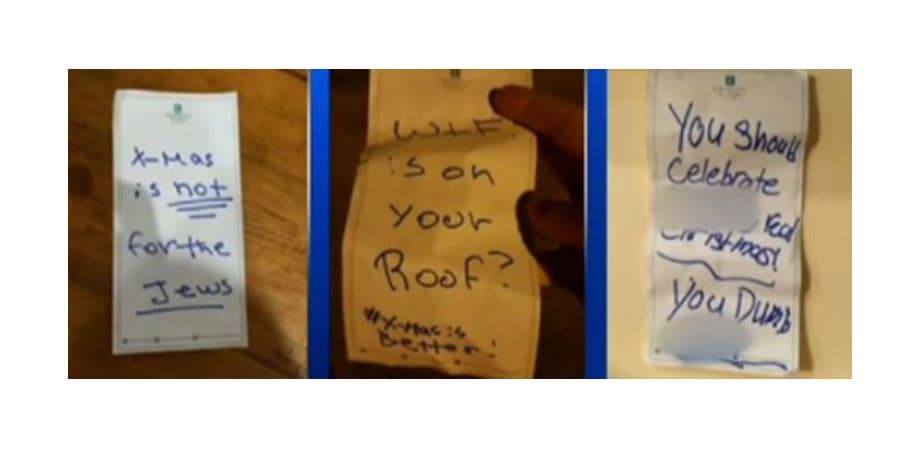 X-Mas
is not
for the
Jews
WTF
is on
your
Roof?
#X-Mas is
Better!
You Should
Celebrate
real
Christmas!
You Dumb